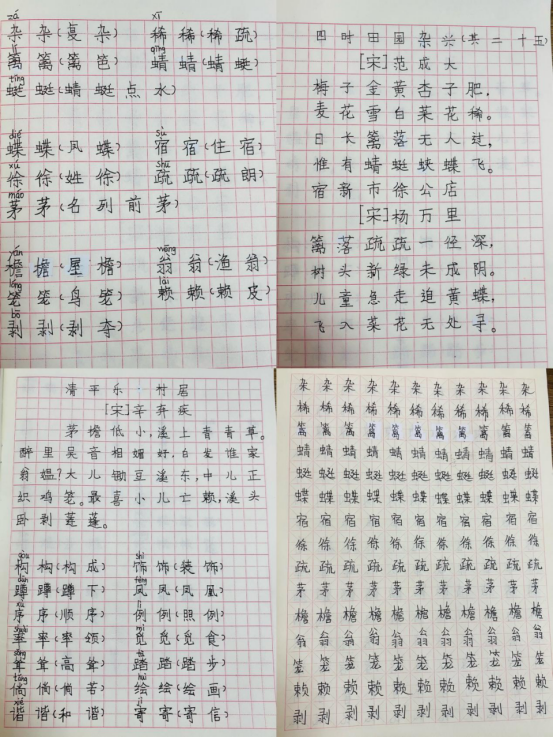 zá xī
杂 杂(复杂) 稀 稀(稀疏)
lí qīng
篱 篱(篱笆) 蜻 蜻(蜻蜓)
tíng
蜓 蜓(蜻蜓点水)
dié sù
蝶 蝶(凤蝶) 宿 宿(住宿)
xú shū
徐 徐(姓徐) 疏 疏(疏朗)
máo
茅 茅(名列前茅)
yán wēng
檐 檐(屋檐) 翁 翁(渔翁)
lóng lài
笼 笼(鸟笼) 赖 赖(赖皮)
bō
剥 剥(剥夺)
四时田园杂兴(其二十五)
[宋]范成大
梅子金黄杏子肥,
麦花雪白菜花稀。
日长篱落无人过,
惟有蜻蜓蛱蝶飞。
宿新市徐公店
[宋]杨万里
篱落疏疏一径深,
树头新绿未成阴。
儿童急走追黄蝶,
飞入菜花无处寻。
清平乐·村居
[宋]辛弃疾
茅檐低小,溪上青青草。
醉里吴音相媚好,白发谁家
翁媪?大儿锄豆溪东,中儿正
织鸡笼。最喜小儿亡赖,溪头
卧剥莲蓬。
gòu shì
构 构(构成) 饰 饰(装饰)
dūn fèng
蹲 蹲(蹲下) 凤 凤(凤凰)
xù lì
序 序(顺序) 例 例(照例)
shuài mì
率 率(率领) 觅 觅(觅食)
sǒng tà
耸 耸(高耸) 踏 踏(踏步)
tǎng huì
倘 倘(倘若) 绘 绘(绘画)
xié jì
谐 谐(和谐) 寄 寄(寄信)
杂 杂 杂 杂 杂 杂 杂 杂 杂 杂
稀 稀 稀 稀 稀 稀 稀 稀 稀 稀
篱 篱 篱 篱 篱 篱 篱 篱 篱 篱
蜻 蜻 蜻 蜻 蜻 蜻 蜻 蜻 蜻 蜻
蜓 蜓 蜓 蜓 蜓 蜓 蜓 蜓 蜓 蜓
蝶 蝶 蝶 蝶 蝶 蝶 蝶 蝶 蝶 蝶
宿 宿 宿 宿 宿 宿 宿 宿 宿 宿
徐 徐 徐 徐 徐 徐 徐 徐 徐 徐
疏 疏 疏 疏 疏 疏 疏 疏 疏 疏
茅 茅 茅 茅 茅 茅 茅 茅 茅 茅
檐 檐 檐 檐 檐 檐 檐 檐 檐 檐
翁 翁 翁 翁 翁 翁 翁 翁 翁 翁
笼 笼 笼 笼 笼 笼 笼 笼 笼 笼
赖 赖 赖 赖 赖 赖 赖 赖 赖 赖
剥 剥 剥 剥 剥 剥 剥 剥 剥 剥